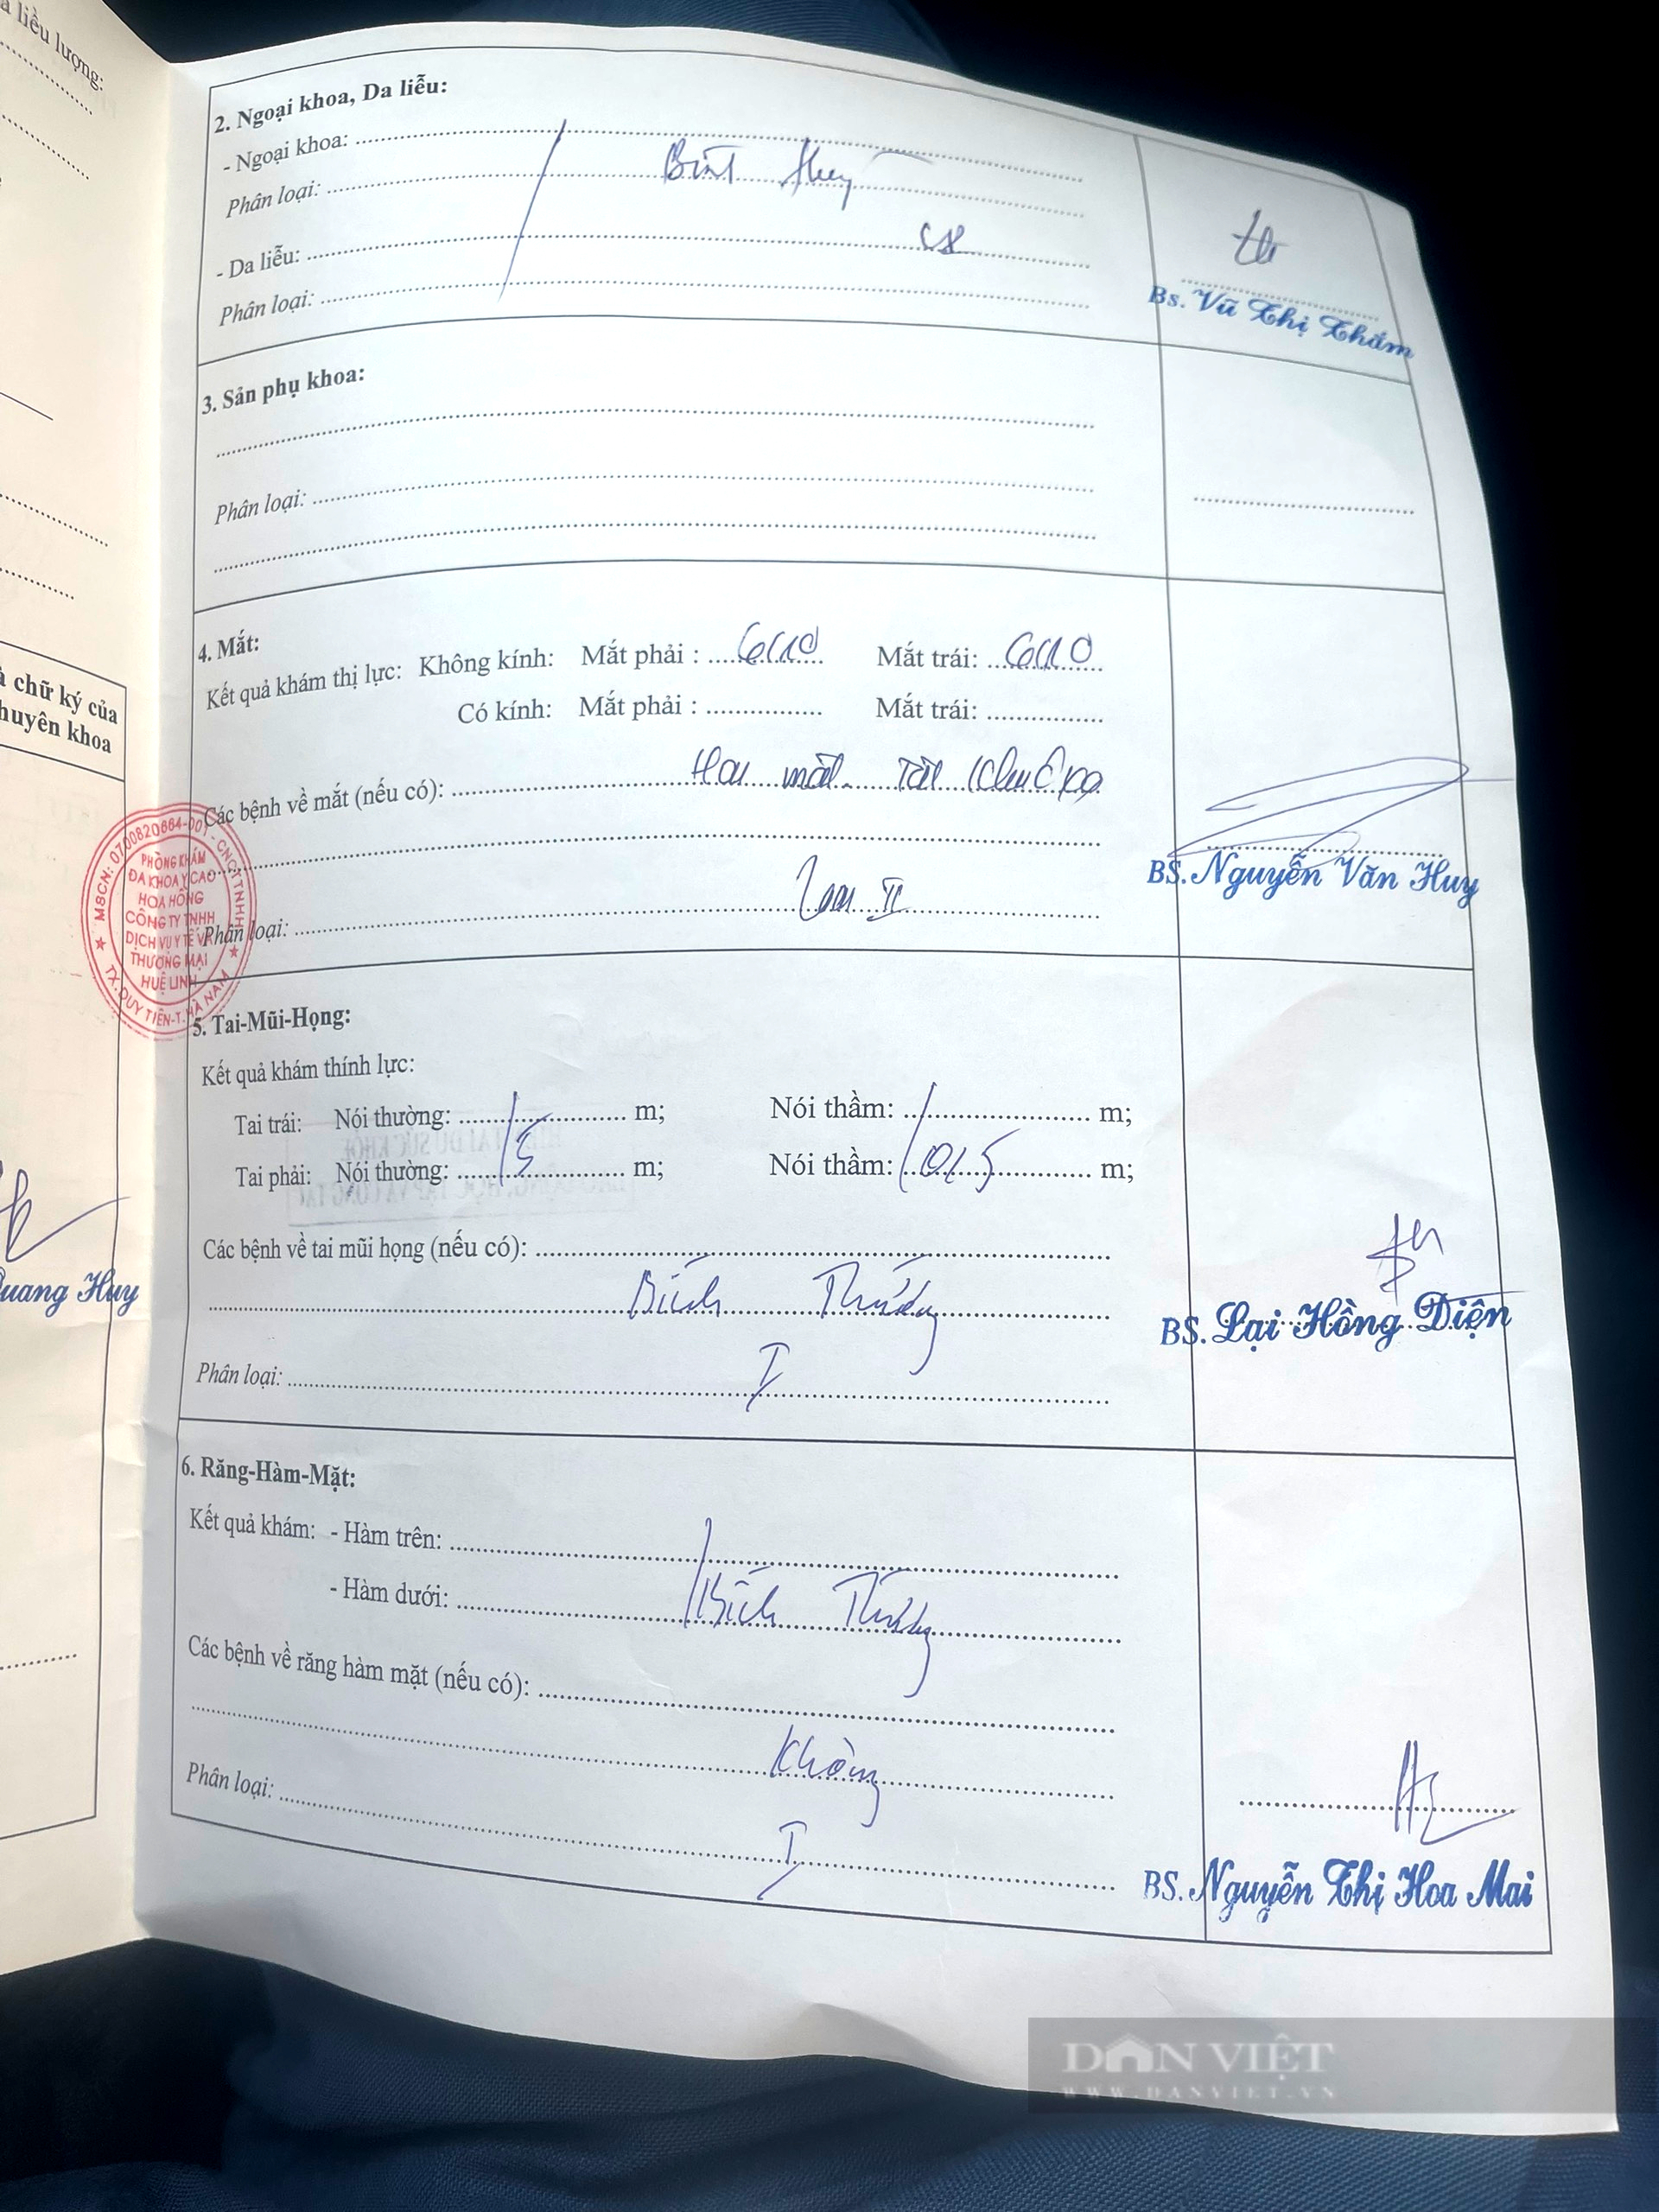 a liều lượng:
à chữ ký của
huyên khoa
uang Huy
2. Ngoại khoa, Da liễu:
- Ngoại khoa:
Phân loại:
- Da liễu:
Phân loại:
Bs. Vũ Thị Thắm
3. Sản phụ khoa:
Phân loại:
4. Mắt:
Kết quả khám thị lực: Không kính: Mắt phải : 6/10 Mắt trái: 6/10
Có kính: Mắt phải : Mắt trái:
Các bệnh về mắt (nếu có): Hai mắt Tật khúc xạ
Phân loại: Loại II
BS. Nguyễn Văn Huy
MSCN: 0700820664-001 - CNCTTNHH
PHÒNG KHÁM
ĐA KHOA Y CAO
HOA HỒNG
CÔNG TY TNHH
DỊCH VỤ Y TẾ VÀ
THƯƠNG MẠI
HUỆ LINH
TX. DUY TIÊN-T. HÀ NAM
5. Tai-Mũi-Họng:
Kết quả khám thính lực:
Tai trái: Nói thường: m; Nói thầm: m;
Tai phải: Nói thường: 5 m; Nói thầm: 0,5 m;
Các bệnh về tai mũi họng (nếu có):
Bình Thường
Phân loại: I
BS. Lại Hồng Diện
6. Răng-Hàm-Mặt:
Kết quả khám: - Hàm trên:
- Hàm dưới: Bình Thường
Các bệnh về răng hàm mặt (nếu có):
Không
Phân loại: I
BS. Nguyễn Thị Hoa Mai
DÂN VIỆT
WWW.DANVIET.VN